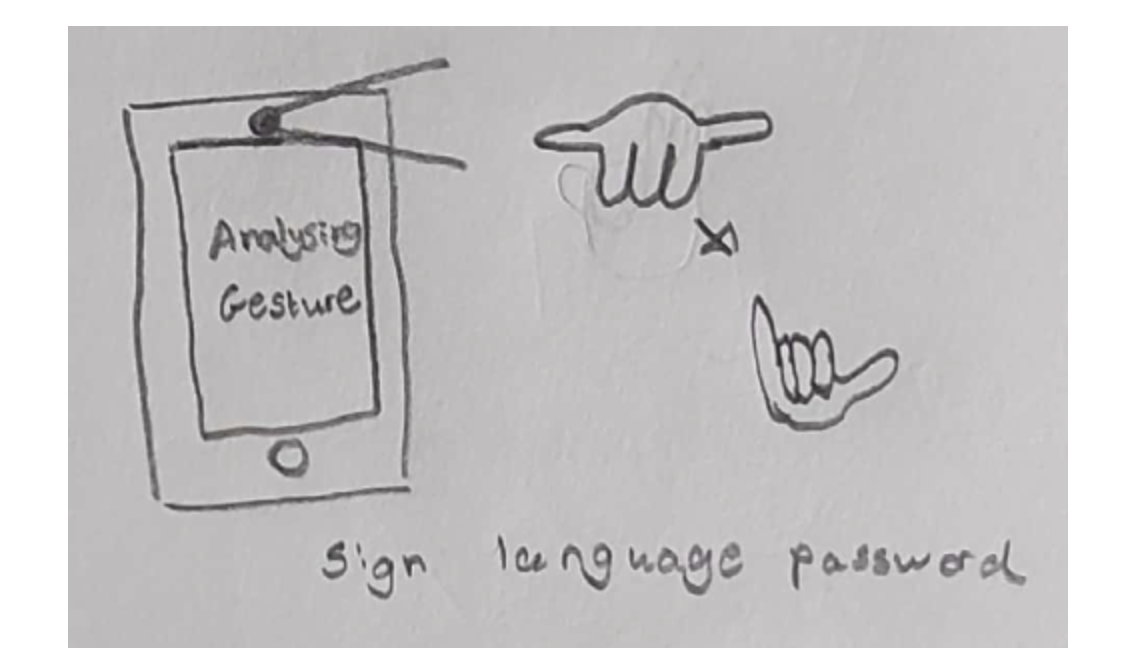 Analysing
Gesture
Sign language password